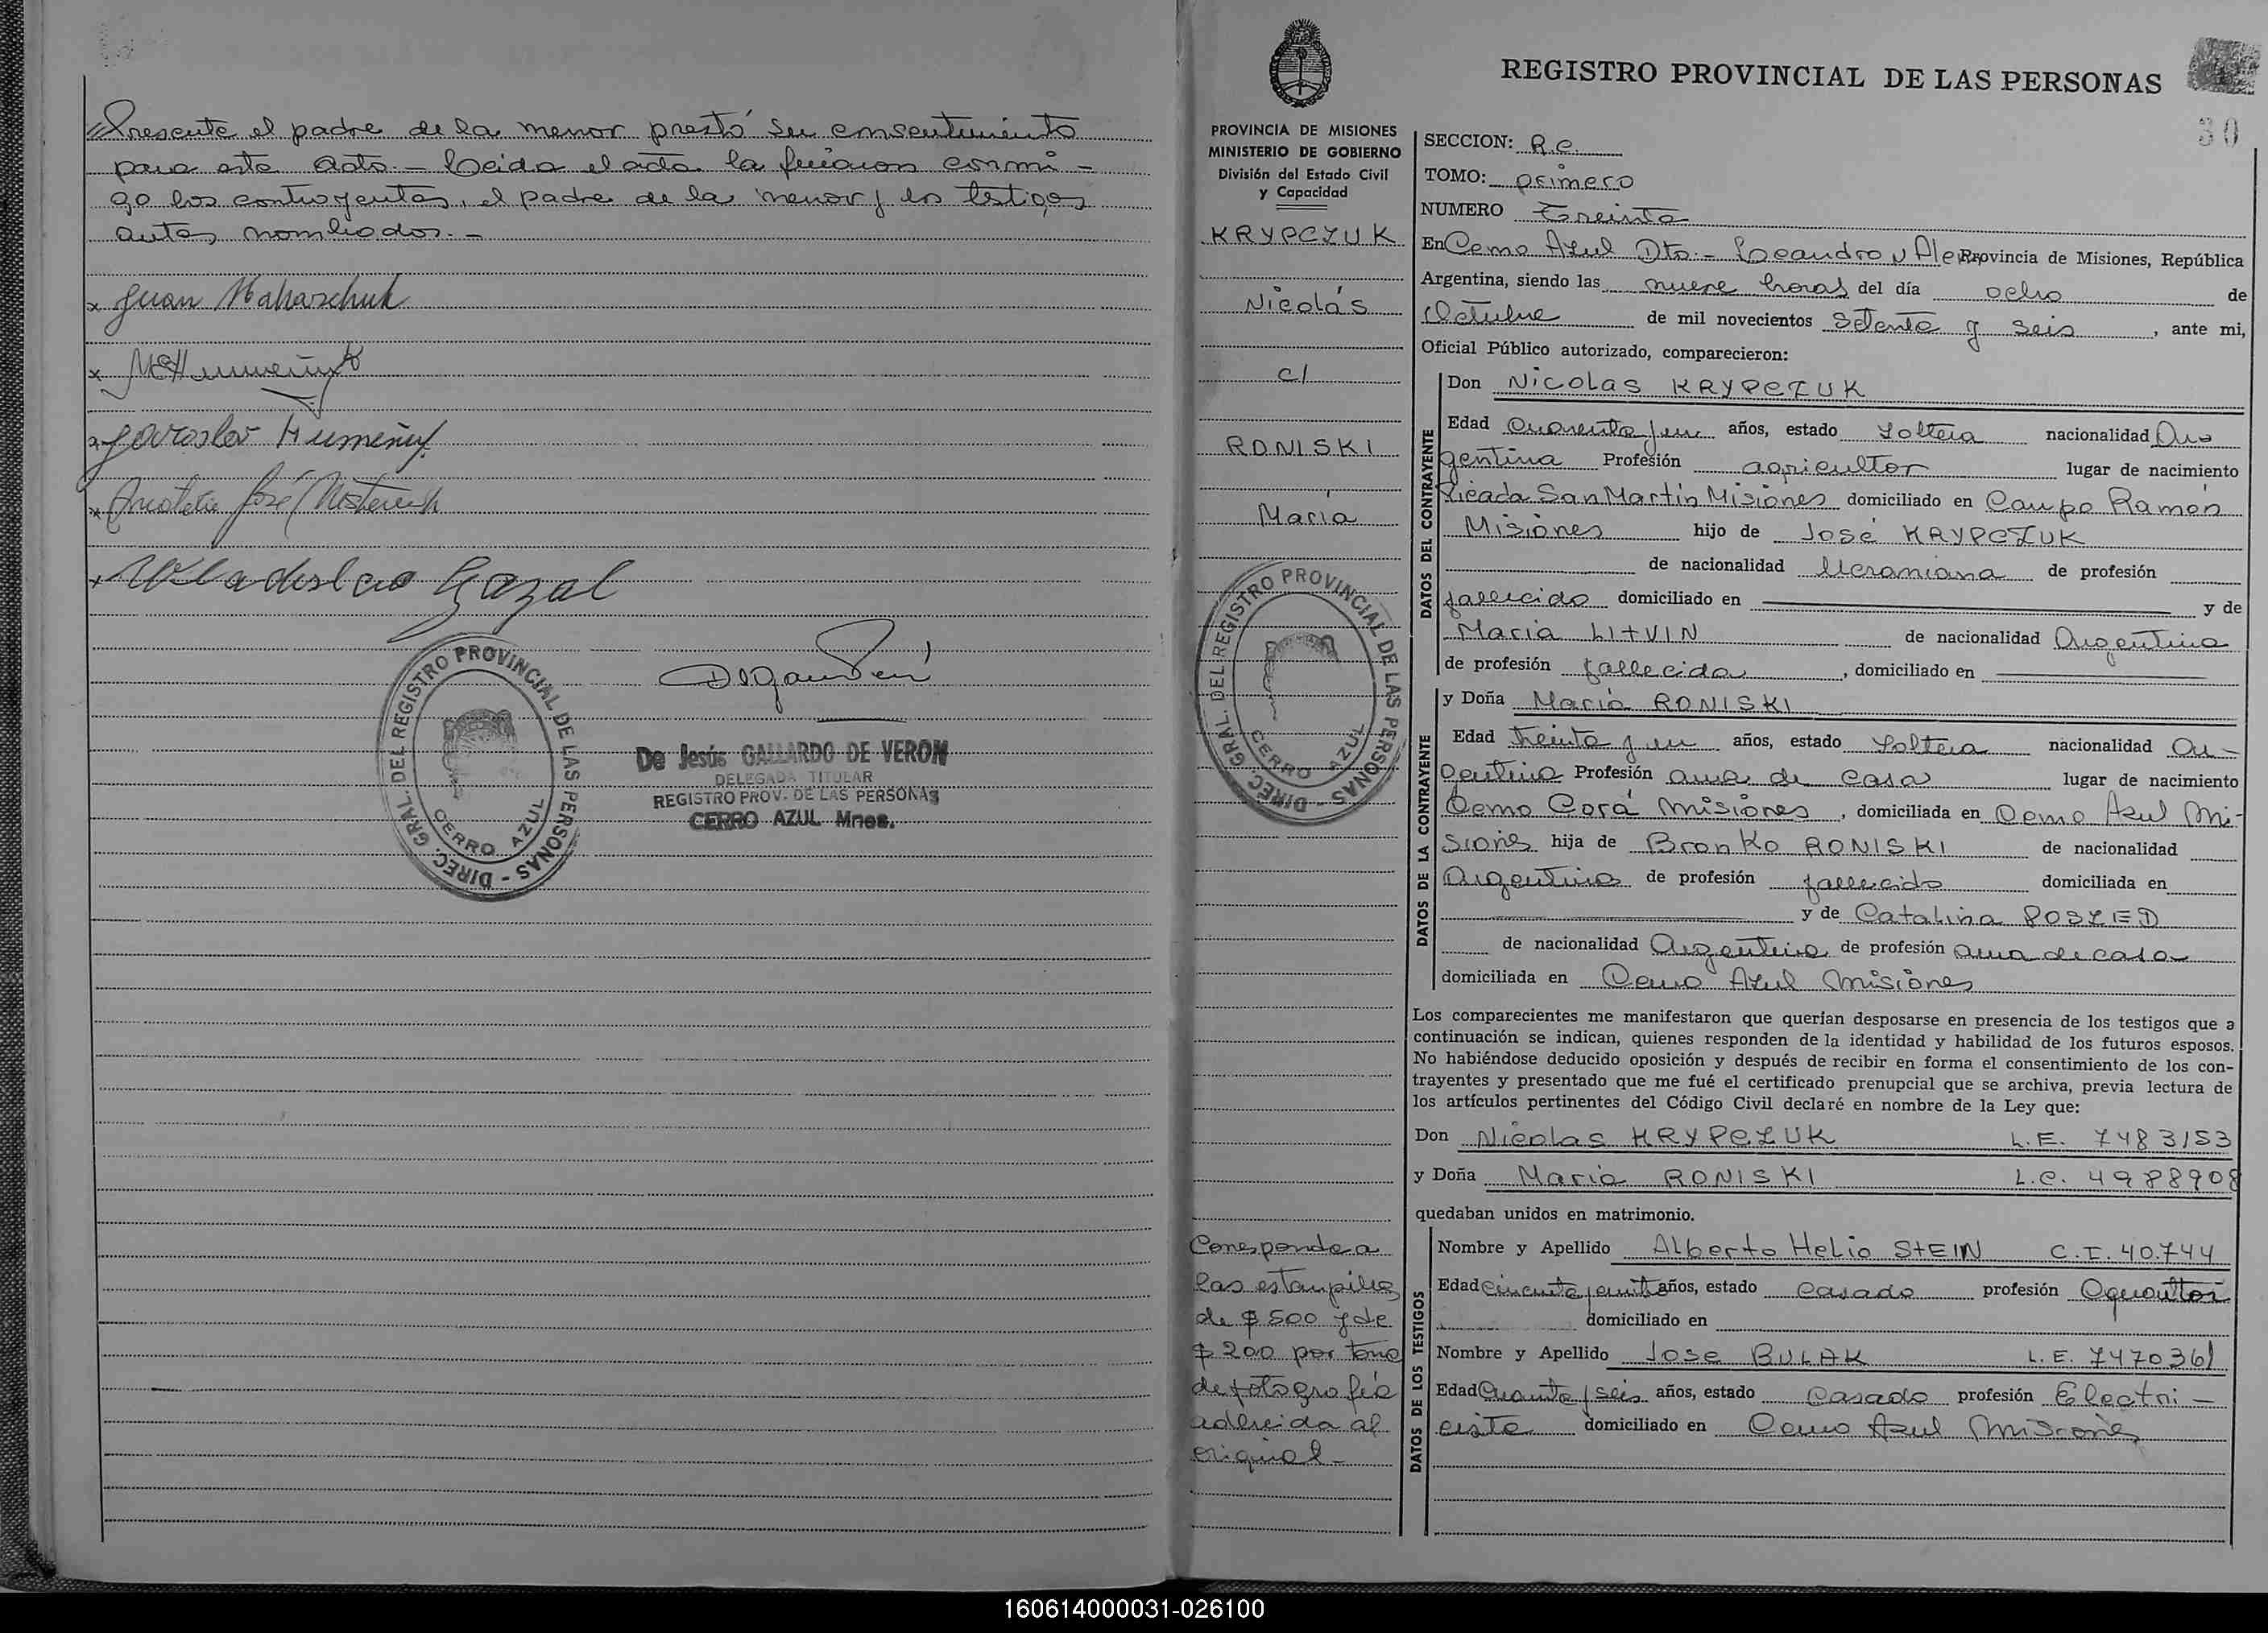 Presente el padre de la menor prestó su consentimiento
para este acto.- Leida el acta la firman conmi-
go los contrayentes, el padre de la menor y los testigos
antes nombrados.-
x Juan
x
x Jaroslav Humeñuk
x José
x Wladislao Gazal
DIREC. GRAL. DEL REGISTRO PROVINCIAL DE LAS PERSONAS -
CERRO AZUL
De Jesús GALLARDO DE VERON
DELEGADA TITULAR
REGISTRO PROV. DE LAS PERSONAS
CERRO AZUL Mnes.
REGISTRO PROVINCIAL DE LAS PERSONAS
30
PROVINCIA DE MISIONES
MINISTERIO DE GOBIERNO
División del Estado Civil
y Capacidad
KRYPCZUK
Nicolás
c/
RONISKI
María
DIREC. GRAL. DEL REGISTRO PROVINCIAL DE LAS PERSONAS -
CERRO AZUL
Corresponde a
las estampillas
de $ 500 y de
$ 200 por toma
de fotografía
adherida al
original-
SECCION: R.C.
TOMO: primero
NUMERO Treinta
En Cerro Azul Dto.- Leandro N Alem Provincia de Misiones, República
Argentina, siendo las nueve horas del día ocho de
Octubre de mil novecientos Setenta y seis, ante mi,
Oficial Público autorizado, comparecieron:
DATOS DEL CONTRAYENTE
Don Nicolas KRYPCZUK
Edad Cuarenta y un años, estado Soltero nacionalidad Ar
gentina Profesión agricultor lugar de nacimiento
Picada San Martín Misiones domiciliado en Campo Ramón
Misiones hijo de José KRYPCZUK
de nacionalidad Ucraniana de profesión
fallecido domiciliado en y de
Maria LitVIN de nacionalidad Argentina
de profesión fallecida, domiciliado en
DATOS DE LA CONTRAYENTE
y Doña Maria RONISKI
Edad treinta y un años, estado Soltera nacionalidad Ar-
gentina Profesión ama de casa lugar de nacimiento
Cerro Corá Misiones, domiciliada en Cerro Azul Mi-
siones hija de Bronko RONISKI de nacionalidad
Argentina de profesión fallecido domiciliada en
y de Catalina POSLED
de nacionalidad Argentina de profesión ama de casa
domiciliada en Cerro Azul Misiones
Los comparecientes me manifestaron que querían desposarse en presencia de los testigos que a
continuación se indican, quienes responden de la identidad y habilidad de los futuros esposos.
No habiéndose deducido oposición y después de recibir en forma el consentimiento de los con-
trayentes y presentado que me fué el certificado prenupcial que se archiva, previa lectura de
los artículos pertinentes del Código Civil declaré en nombre de la Ley que:
Don Nicolas KRYPCZUK L.E. 7483153
y Doña Maria RONISKI L.C. 4988908
quedaban unidos en matrimonio.
DATOS DE LOS TESTIGOS
Nombre y Apellido Alberto Helio StEIN C.I. 40.744
Edad años, estado Casado profesión Agricultor
domiciliado en
Nombre y Apellido Jose BULAK L.E. 7470361
Edad Cuarenta y seis años, estado Casado profesión Electri-
cista domiciliado en Cerro Azul Misiones
160614000031-026100